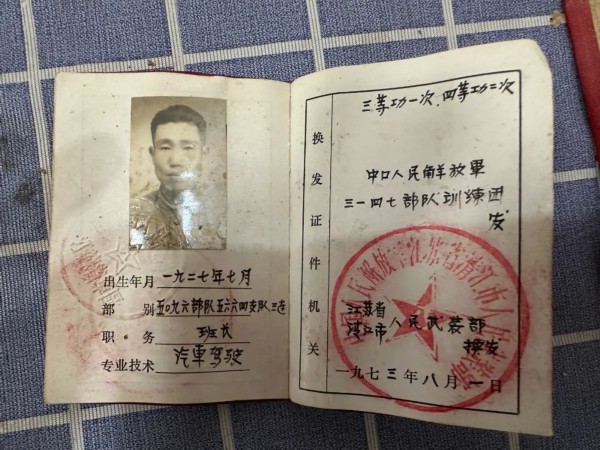 出生年月 一九二七年七月
部 别 五0九六部队五六四支队三连
职 务 班长
专业技术 汽車驾驶
三等功一次、四等功二次
换发证件机关
中口人民解放軍
三一四七部队训练团
发
江苏省
清江市人民武装部
换发
一九七三年八月一日